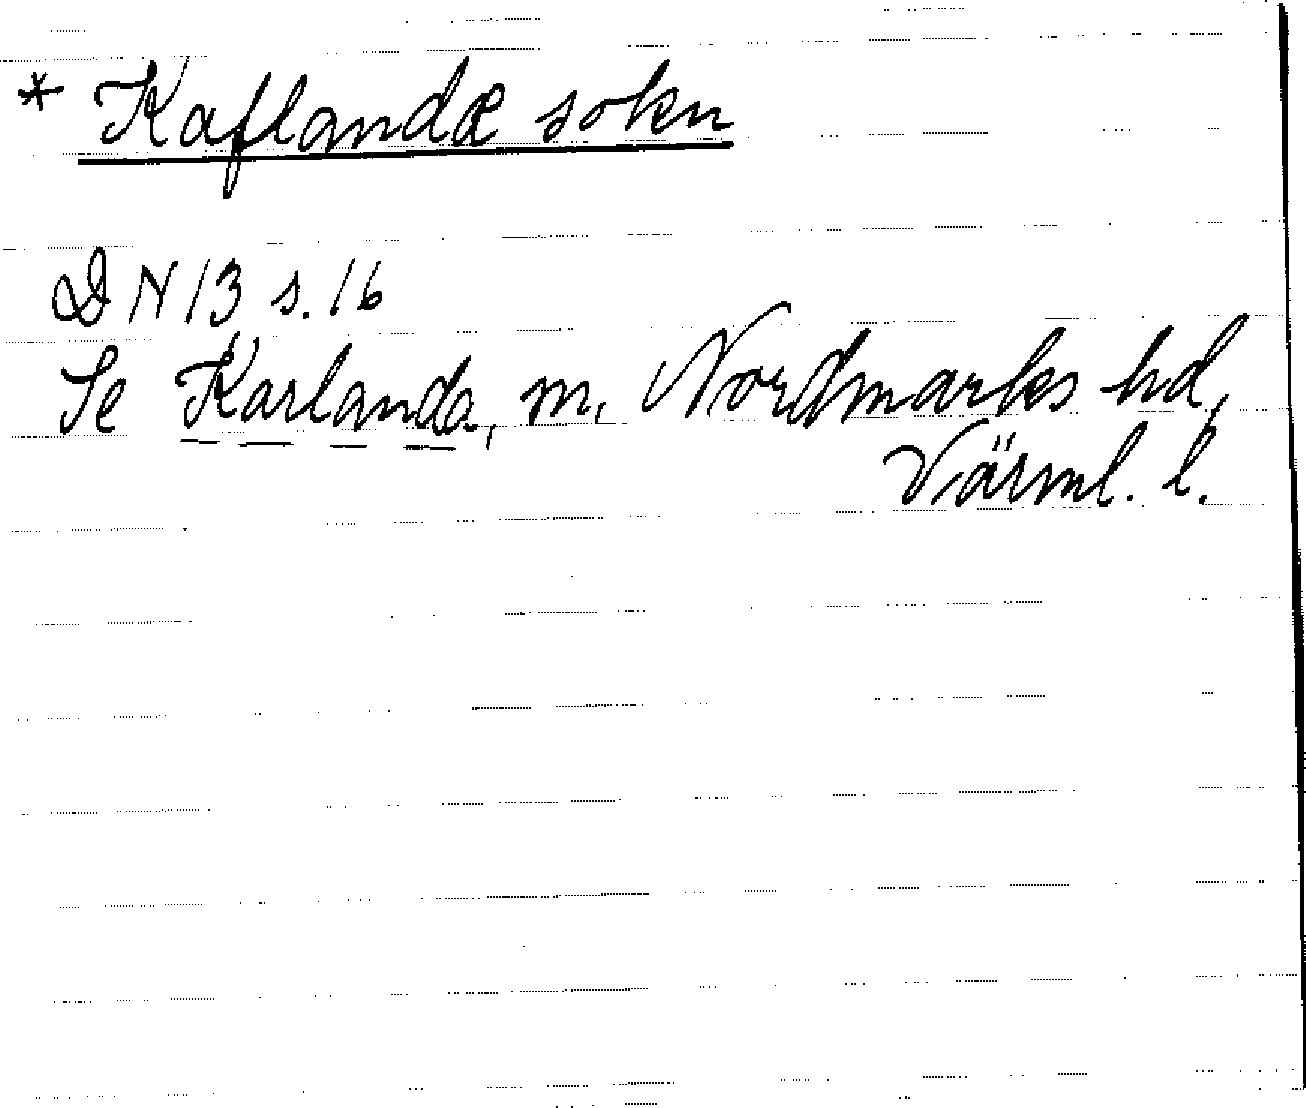 * Kaflandæ sokn
DN 13 s. 16
Se Karlanda, m, Nordmarks hd,
Värml. l.